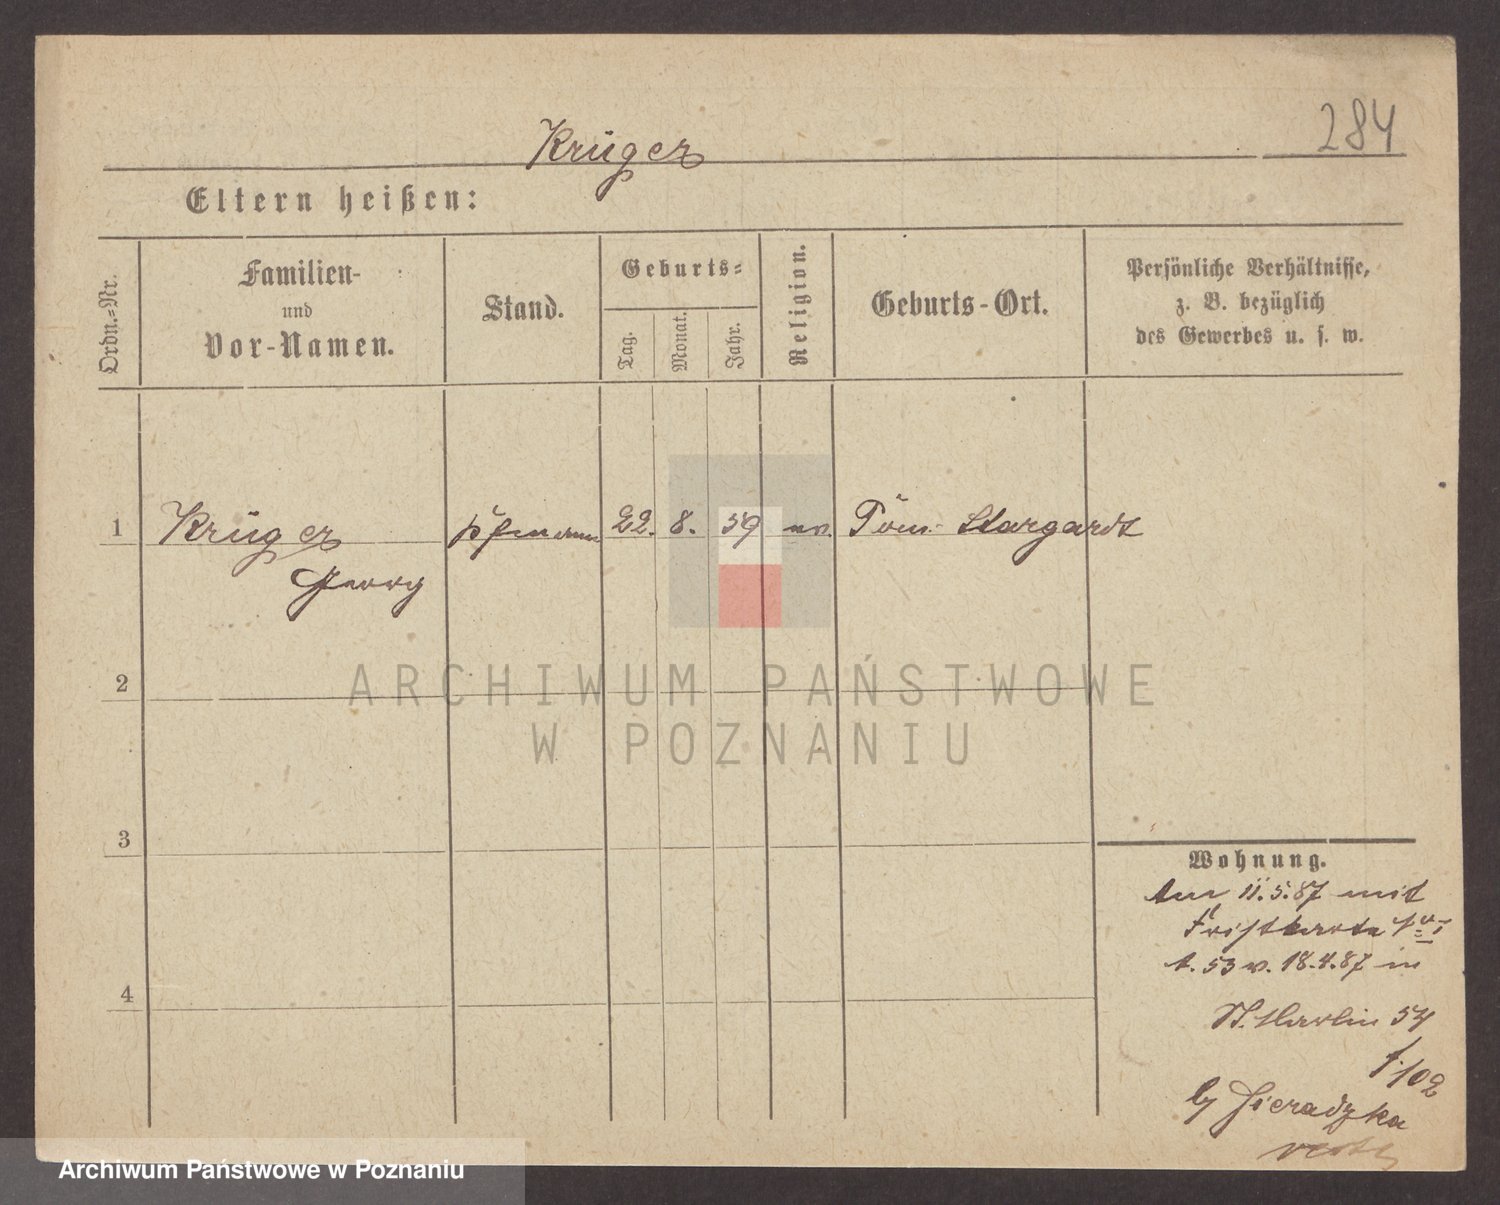 284
Krüger
Eltern heißen:
Ordn.-Nr.
Familien-
und
Vor-Namen.
Stand.
Geburts-
Tag.
Monat.
Jahr.
Religion.
Geburts-Ort.
Persönliche Verhältnisse,
z. B. bezüglich
des Gewerbes u. s. w.
1
Krüger
Georg
22.
8.
59
ev.
Pom. Stargardt
2
ARCHIWUM PAŃSTWOWE
W POZNANIU
3
4
Wohnung.
11.5.87 mit
Fristkarte
53 v. 18.4.87 in
St. Martin 54
f. 102
Sieradzka
Archiwum Państwowe w Poznaniu